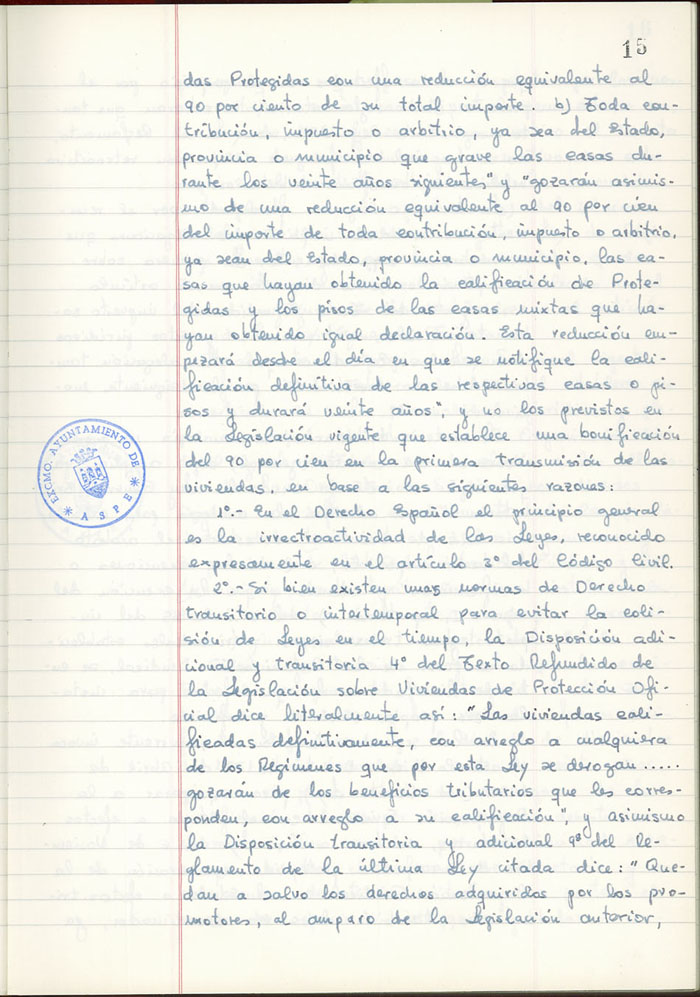 15
das Protegidas con una reducción equivalente al
90 por ciento de su total importe. b) Toda con-
tribución, impuesto o arbitrio, ya sea del Estado,
provincia o municipio que grave las casas du-
rante los veinte años siguientes" y "gozarán asimis-
mo de una reducción equivalente al 90 por cien
del importe de toda contribución, impuesto o arbitrio,
ya sean del Estado, provincia o municipio, las ca-
sas que hayan obtenido la calificación de Prote-
gidas y los pisos de las casas mixtas que ha-
yan obtenido igual declaración. Esta reducción em-
pezará desde el día en que se notifique la cali-
ficación definitiva de las respectivas casas o pi-
sos y durará veinte años", y no los previstos en
la Legislación vigente que establece una bonificación
del 90 por cien en la primera transmisión de las
viviendas, en base a las siguientes razones:
1º.- En el Derecho Español el principio general
es la irrectroactividad de las Leyes, reconocido
expresamente en el artículo 3º del Código Civil.
2º.- Si bien existen unas normas de Derecho
transitorio o intertemporal para evitar la coli-
sión de Leyes en el tiempo, la Disposición adi-
cional y transitoria 4º del Texto Refundido de
la Legislación sobre Viviendas de Protección Ofi-
cial dice literalmente así: "Las viviendas cali-
ficadas definitivamente, con arreglo a cualquiera
de los Regímenes que por esta Ley se derogan.....
gozarán de los beneficios tributarios que les corres-
ponden, con arreglo a su calificación", y asimismo
la Disposición transitoria y adicional 9ª del Re-
glamento de la última Ley citada dice: "Que-
dan a salvo los derechos adquiridos por los pro-
motores, al amparo de la Legislación anterior,
EXCMO. AYUNTAMIENTO DE
* ASPE *